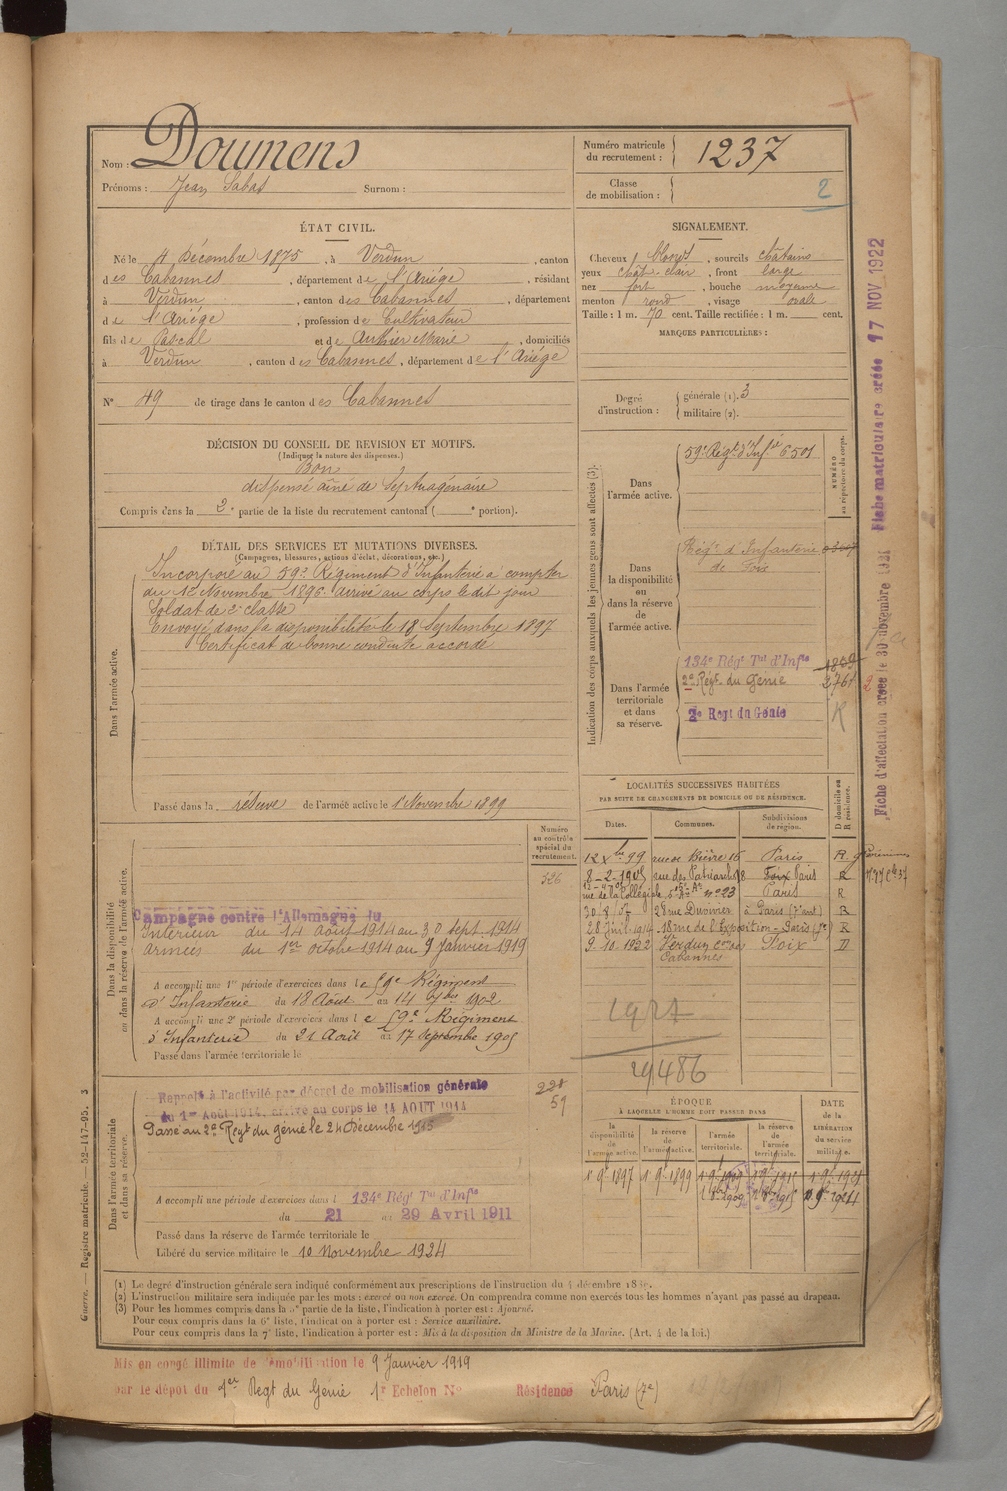 Nom : Doumens
Prénoms : Jean Sabas Surnom :
Numéro matricule du recrutement : 1237
Classe de mobilisation : 2
ÉTAT CIVIL.
Né le 4 Décembre 1875, à Verdun, canton
des Cabannes, département de l'Ariége, résidant
à Verdun, canton des Cabannes, département
de l'Ariége, profession de Cultivateur
fils de Pascal et de Authier Marie, domiciliés
à Verdun, canton des Cabannes, département de l'Ariége
N° 49 de tirage dans le canton des Cabannes
SIGNALEMENT.
Cheveux blonds, sourcils châtains
yeux chât. clair, front large
nez fort, bouche moyenne
menton rond, visage ovale
Taille : 1 m. 70 cent. Taille rectifiée : 1 m. cent.
MARQUES PARTICULIÈRES :
Degré d'instruction : générale (1). 3
militaire (2).
DÉCISION DU CONSEIL DE REVISION ET MOTIFS.
(Indiquer la nature des dispenses.)
Bon
dispensé aîné de Septuagénaire
Compris dans la 2e partie de la liste du recrutement cantonal ( e portion).
DÉTAIL DES SERVICES ET MUTATIONS DIVERSES.
(Campagnes, blessures, actions d'éclat, décorations, etc.)
Dans l'armée active.
Incorporé au 59e Régiment d'Infanterie à compter
du 12 Novembre 1896. arrivé au corps le dit jour
Soldat de 2e classe
Envoyé dans la disponibilité le 18 Septembre 1897
Certificat de bonne conduite accordé
Passé dans la réserve de l'armée active le 1er Novembre 1899
Indication des corps auxquels les jeunes gens sont affectés (3).
NUMÉRO au répertoire du corps.
Dans l'armée active.
59e Régt d'Infie 6501
Dans la disponibilité ou dans la réserve de l'armée active.
Régt d'Infanterie
de Foix
Dans l'armée territoriale et dans sa réserve.
134e Régt Tal d'Infie
2e Régt du Génie
2e Regt du Génie
R
Fiche matriculaire créée 17 NOV 1922
Fiche d'affectation créée le 30 novembre
LOCALITÉS SUCCESSIVES HABITÉES
PAR SUITE DE CHANGEMENTS DE DOMICILE OU DE RÉSIDENCE.
Dates. Communes. Subdivisions de région. D domicile ou R résidence.
12 Xbre 99 rue de Bièvre 16 Paris R.
8-2-1905 rue des Patriarches 8 Foix Paris R
rue de la Collégiale n° 23 Paris R
30.8.07 28 rue Duvivier à Paris (7e art) R
28 juil. 1914 18 rue de l'Exposition - Paris (7e) R
9-10-1932 Verdun con des Cabannes Foix D
29486
Dans la disponibilité ou dans la réserve de l'armée active.
Numéro au contrôle spécial du recrutement.
326
Campagne contre l'Allemagne du
Intérieur du 14 août 1914 au 30 sept. 1914
Armées du 1er octobre 1914 au 9 janvier 1919
A accompli une 1re période d'exercices dans le 59e Régiment
d'Infanterie du 18 Août au 14 7bre 1902
A accompli une 2e période d'exercices dans le 59e Régiment
d'Infanterie du 21 Août au 17 Septembre 1905
Passé dans l'armée territoriale le
Dans l'armée territoriale et dans sa réserve.
Rappelé à l'activité par décret de mobilisation générale
du 1er Août 1914, arrivé au corps le 14 AOUT 1914
Passé au 2e Regt du génie le 24 Décembre 1915
228
59
A accompli une période d'exercices dans l 134e Régt Tal d'Infie
du 21 au 29 Avril 1911
Passé dans la réserve de l'armée territoriale le
Libéré du service militaire le 10 Novembre 1924
ÉPOQUE
À LAQUELLE L'HOMME DOIT PASSER DANS
DATE de la LIBÉRATION du service militaire.
la disponibilité de l'armée active. la réserve de l'armée active. l'armée territoriale. la réserve de l'armée territoriale.
1 9bre 1897 1 9bre 1899 1 9bre 1909
Guerre. — Registre matricule. — 52-147-95. 3
(1) Le degré d'instruction générale sera indiqué conformément aux prescriptions de l'instruction du 4 décembre
(2) L'instruction militaire sera indiquée par les mots : exercé ou non exercé. On comprendra comme non exercés tous les hommes n'ayant pas passé au drapeau.
(3) Pour les hommes compris dans la 5e partie de la liste, l'indication à porter est : Ajourné.
Pour ceux compris dans la 6e liste, l'indication à porter est : Service auxiliaire.
Pour ceux compris dans la 7e liste, l'indication à porter est : Mis à la disposition du Ministre de la Marine. (Art. 4 de la loi.)
Mis en congé illimité de démobilisation le 9 Janvier 1919
par le dépôt du 1er Regt du Génie 1r Echelon N° Résidence Paris (7e)